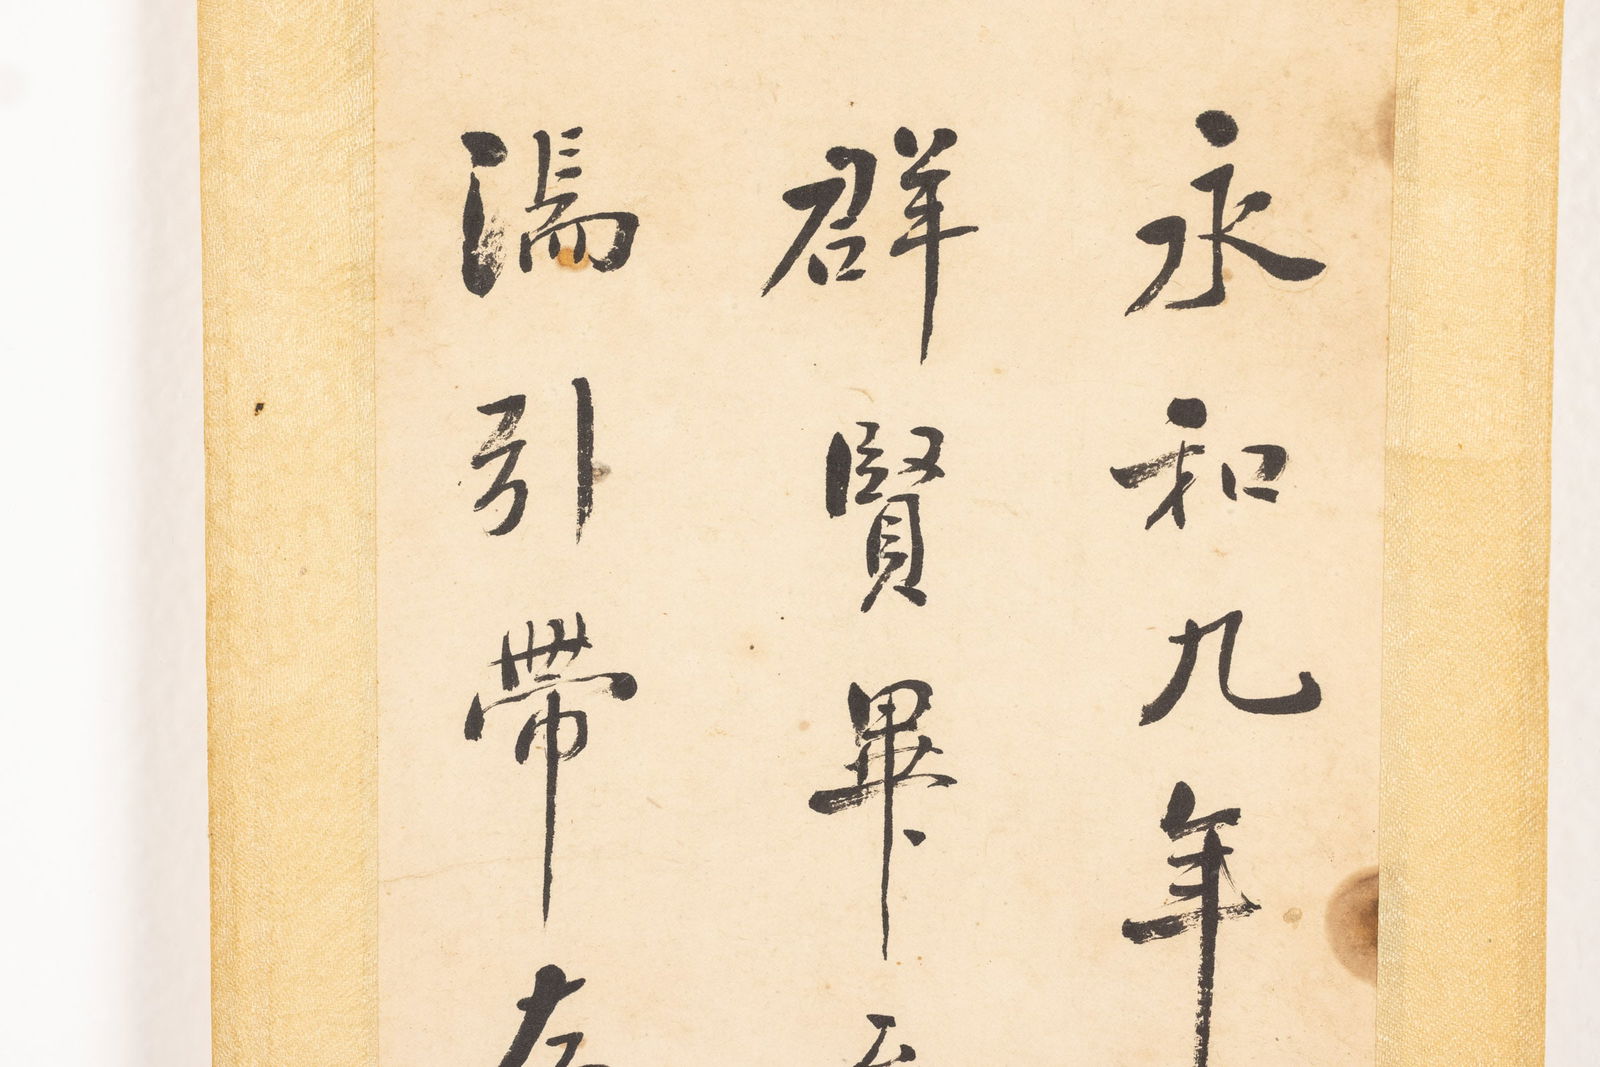 永和九年
群賢畢
湍引帶左